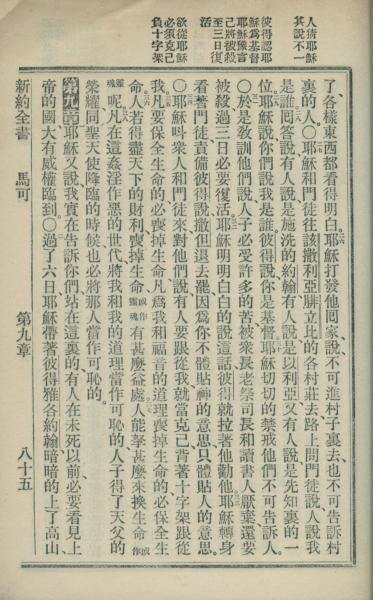 人猜耶穌
其說不一
彼得認耶
穌為基督
耶穌豫言
己將被殺
至三日復
活
欲從耶穌
必須克己
負十字架
了、各樣東西都看得明白。耶穌打發他囘家、說、不可進村子裏去、也不可告訴村
裏的人。〇耶穌和門徒往該撒利亞腓立比的各村莊去、路上問門徒說、人說我
是誰、囘答說、有人說是施洗的約翰、有人說是以利亞、又有人說是先知裏的一
位。耶穌說、你們說我是誰、彼得說、你是基督。耶穌切切的禁戒他們、不可告訴人。
〇於是教訓他們說、人子必受許多的苦、被衆長老祭司長和讀書人厭棄、還要
被殺、過三日必要復活。耶穌明明白白的說這話、彼得就拉著他勸他。耶穌轉身
看著門徒、責備彼得說、撒但退去罷、因為你不體貼神的意思、只體貼人的意思。
〇耶穌呌衆人和門徒來、對他們說、有人要跟從我、就當克己、背著十字架跟從
我。凡要保全生命的、必喪掉生命、凡為我和福音的道理喪掉生命的、必保全生
命。人若得盡天下的財利、喪掉生命、或作靈魂有甚麼益處。人能拏甚麼來換生命或作
靈魂呢。凡在這姦淫作惡的世代、將我和我的道理當作可恥的、人子得了天父的
榮耀、同聖天使降臨的時候、也必將那人當作可恥的。
第九章 耶穌又說、我實在告訴你們、站在這裏的、有人在未死以前、必要看見上
帝的國大有威權臨到。〇過了六日、耶穌帶著彼得雅各約翰、暗暗的上了高山、
新約全書 馬可 第九章 八十五